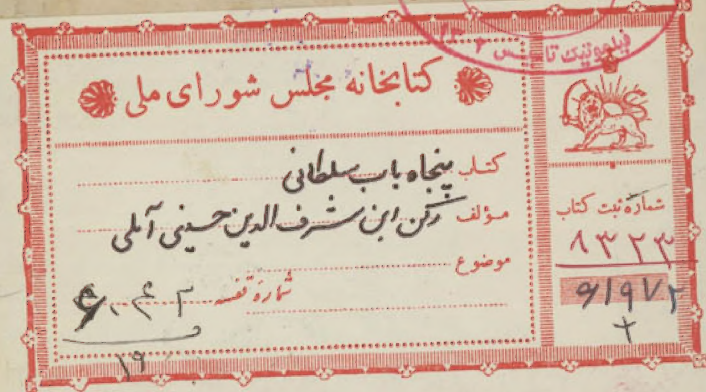 کتابخانه مجلس شورای ملی
کتاب پنجاه باب سلطانی
مؤلف رکن ابن شرف الدین حسینی آملی
موضوع
شمارهٔ قفسه
۱۶
شماره ثبت کتاب
۸۳۲۳